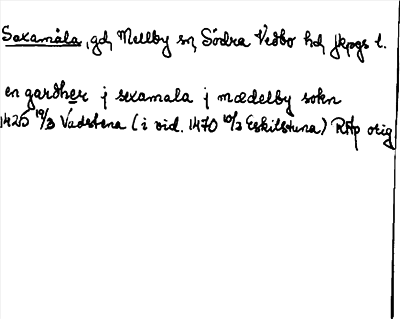 Saxamåla, gd, Mellby sn, Södra Vedbo hd, Jkpgs l.
en gardher j sexamala j mædelby sokn
1425 19/3 Vadstena (i vid. 1470 10/3 Eskilstuna) RAp orig